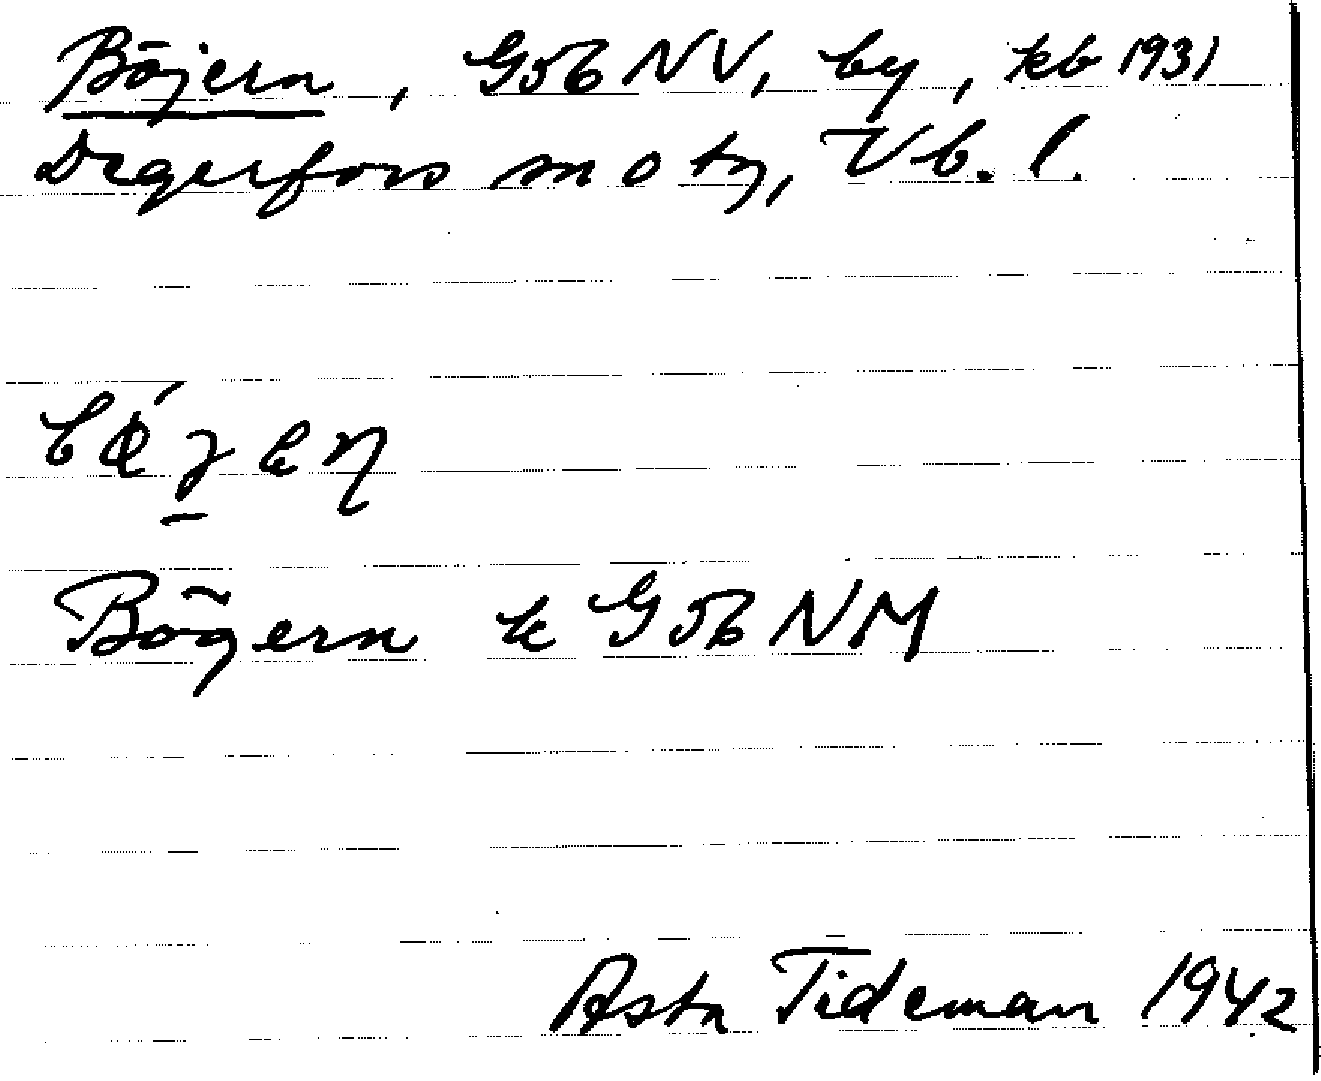 Böjern, G56 NV, by, kb 1931
Degerfors sn o tg, Vb. l.
Bögern k G56 NM
Asta Tideman 1942